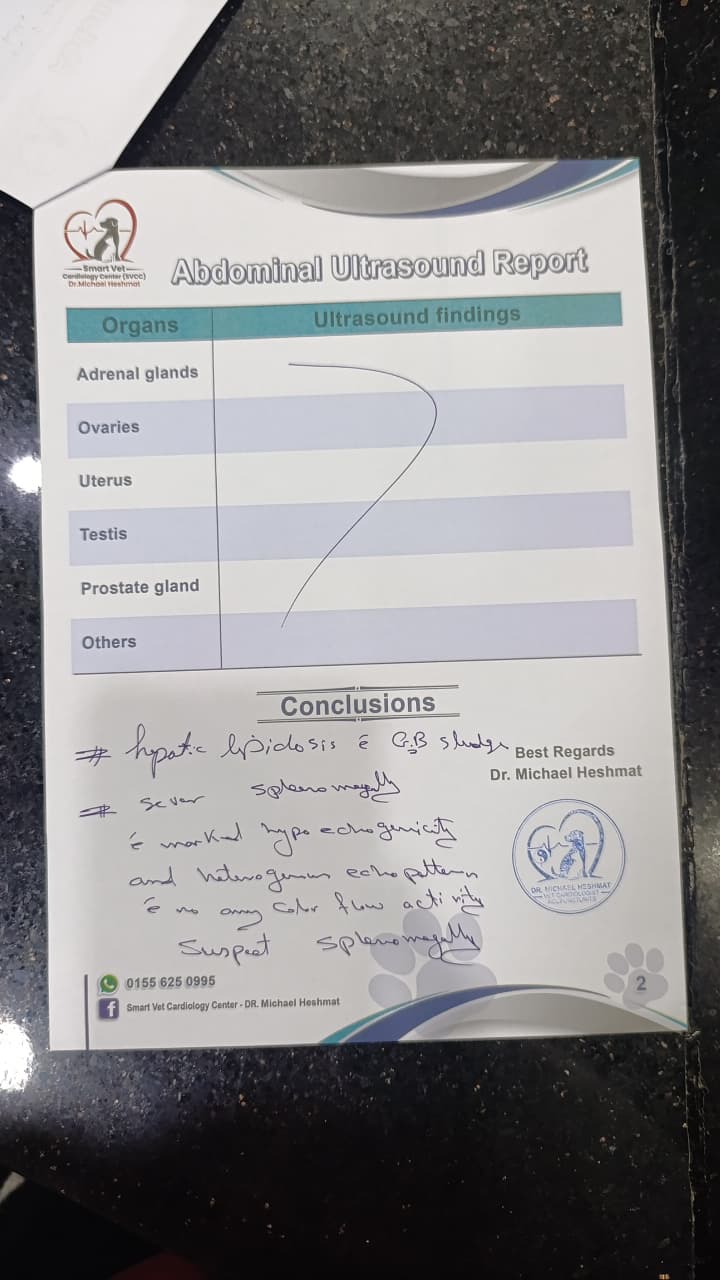 Smart Vet
Cardiology Center (SVCC)
Dr.Michael Heshmat
Abdominal Ultrasound Report
Organs Ultrasound findings
Adrenal glands
Ovaries
Uterus
Testis
Prostate gland
Others
Conclusions
# hepatic lipidosis c̄ G.B sludge
Best Regards
Dr. Michael Heshmat
# sever splenomegally
c̄ marked hypoechogenicity
and heterogenous echopattern
c̄ no any color flow activity
Suspect splenomegally
DR. MICHAEL HESHMAT
VET CARDIOLOGIST
0155 625 0995
Smart Vet Cardiology Center - DR. Michael Heshmat
2